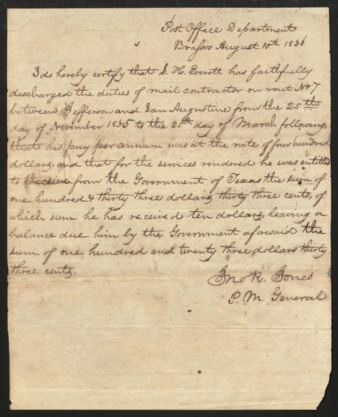 Post Office Department
Brasos August 10th 1836
I do hereby certify that S. H. Everett has faithfully
discharged the duties of mail contractor on rout No 7
between Jefferson and San Augustine from the 25th
day of November 1835 to the 25th day of March following,
that his pay per annum was at the rate of four hundred
dollars, and that for the services rendered he was entitled
to receive from the Government of Texas the sum of
one hundred & thirty three dollars thirty three cents, of
which sum he has received ten dollars, leaving a
balance due him by the Government aforesaid the
sum of one hundred and twenty three dollars thirty
three cents.
Jno R. Jones
P. M. General